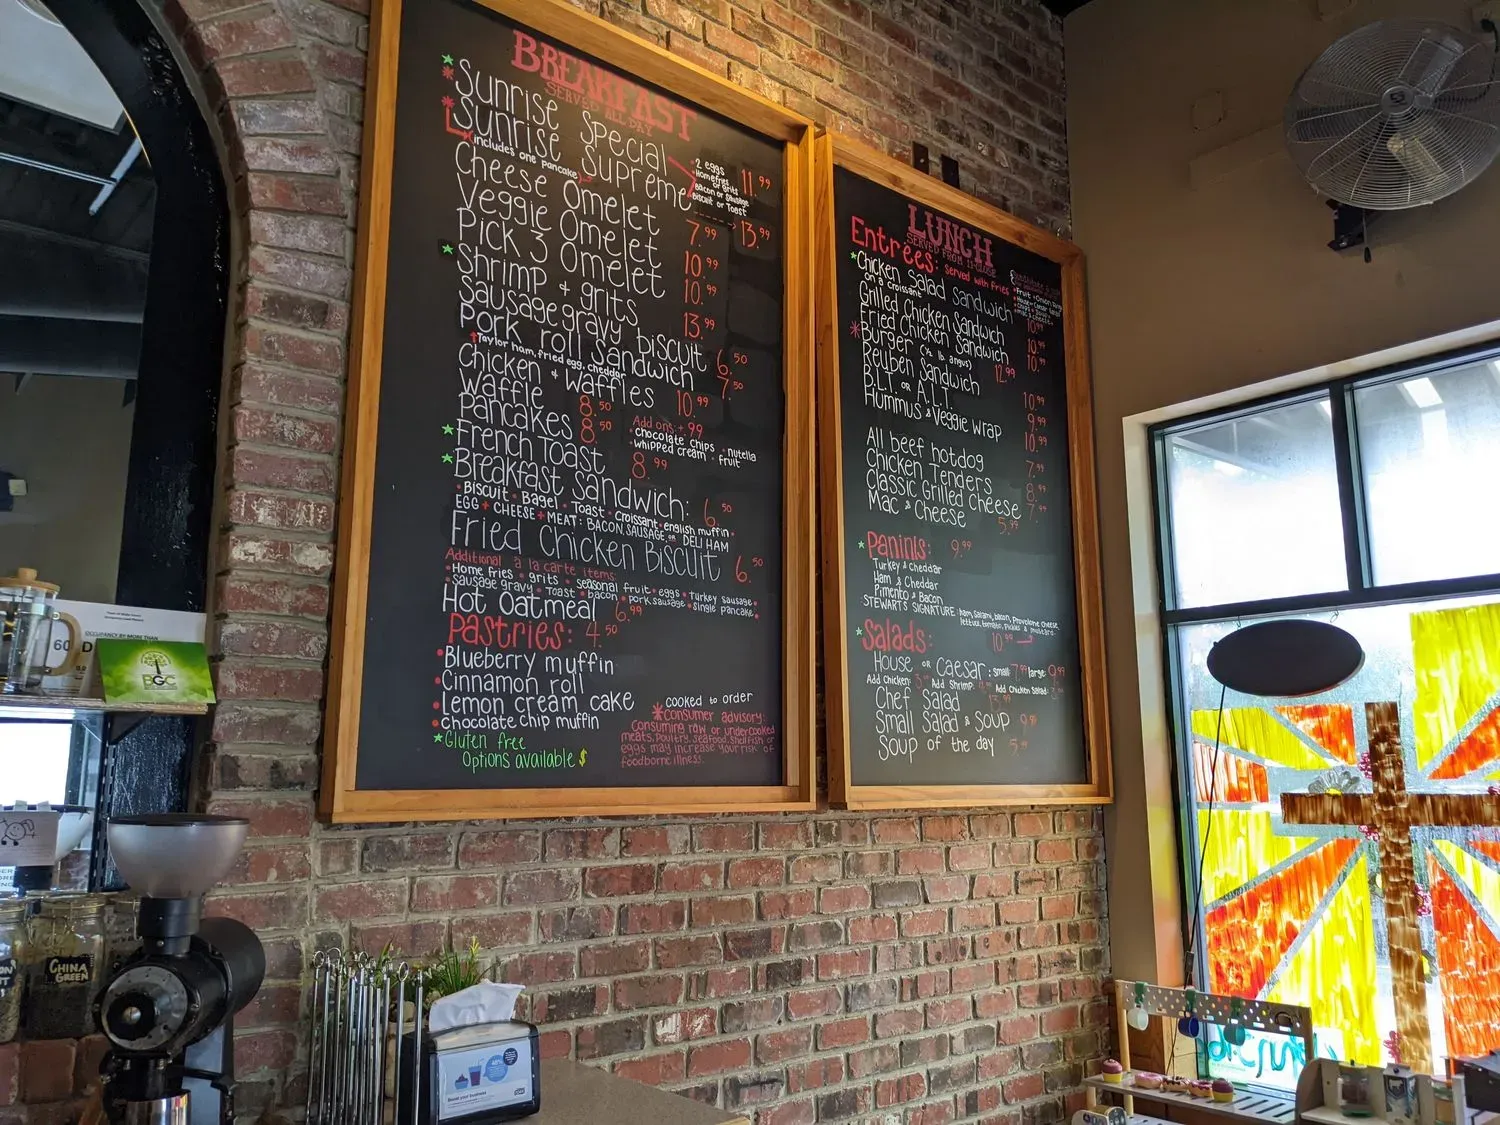 BREAKFAST
SERVED ALL DAY
* * Sunrise Special
* Sunrise Supreme
(includes one pancake)
• 2 eggs
• Homefries or grits
• Bacon or Sausage
• Biscuit or Toast
11.99
13.99
Cheese Omelet 7.99
Veggie Omelet 10.99
Pick 3 Omelet 10.99
* Shrimp + grits 13.99
Sausage gravy biscuit 6.50
Pork roll Sandwich 7.50
Taylor ham, fried egg, cheddar
Chicken & Waffles 10.99
Waffle 8.50
Pancakes 8.50
Add ons: + .99
• chocolate chips • nutella
• whipped cream • fruit
* French Toast 8.99
* Breakfast Sandwich: 6.50
• Biscuit • Bagel • Toast • Croissant • english muffin •
EGG + CHEESE + MEAT: BACON, SAUSAGE, OR DELI HAM
Fried Chicken Biscuit 6.50
Additional a la carte items:
• Home fries • grits • seasonal fruit • eggs • turkey sausage •
• sausage gravy • toast • bacon • pork sausage • single pancake •
Hot Oatmeal 6.99
Pastries: 4.50
• Blueberry muffin
• Cinnamon roll
• Lemon cream cake
• Chocolate chip muffin
* Gluten free
Options available $
* cooked to order
consumer advisory:
Consuming raw or undercooked
meats, poultry, seafood, shellfish or
eggs may increase your risk of
foodborne illness.
LUNCH
SERVED FROM 11-CLOSE
Entrées: served with fries
* Chicken Salad Sandwich 10.99
on a croissant
Grilled Chicken Sandwich 10.99
Fried Chicken Sandwich 10.99
* Burger (½ lb angus) 12.99
Reuben Sandwich 10.99
B.L.T. OR A.L.T. 9.99
Hummus & Veggie wrap 10.99
All beef hotdog 7.99
Chicken Tenders 8.99
Classic Grilled Cheese 7.99
Mac & Cheese 5.99
* Paninis: 9.99
Turkey & Cheddar
Ham & Cheddar
Pimento & Bacon
STEWART'S SIGNATURE: ham, salami, bacon, Provolone cheese,
lettuce, tomato, pickles & mustard
10.99
* Salads:
House OR Caesar: small 7.99 large 9.99
Add Chicken: Add Shrimp: Add Chicken Salad:
Chef Salad 13.99
Small Salad & Soup 9.99
Soup of the day 5.99
OCCUPANCY BY MORE THAN
60
BGC
CHINA GREEN